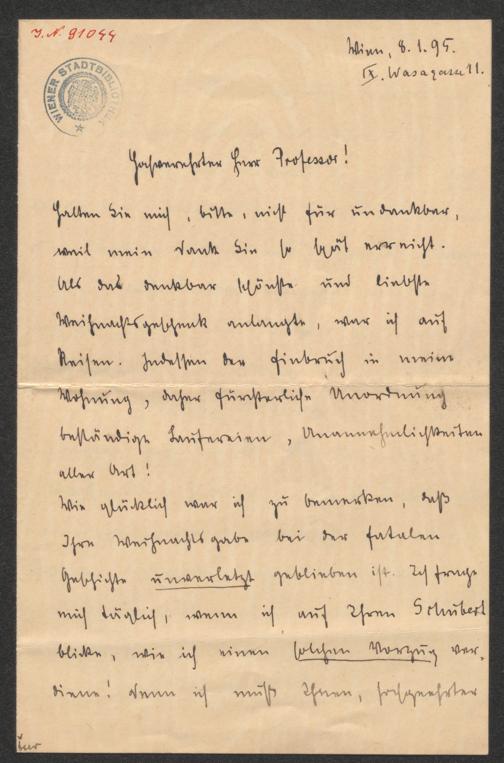 J. N. 91044
WIENER STADTBIBLIOTHEK
Wien, 8. 1. 95.
IX. Wasagasse 11.
Hochverehrter Herr Professor!
Halten Sie mich, bitte, nicht für undankbar,
weil mein Dank Sie so spät erreicht.
Als das denkbar schönste und liebste
Weihnachtsgeschenk anlangte, war ich auf
Reisen. Indessen der Einbruch in meine
Wohnung, daher fürchterliche Unordnung
beständige Laufereien, Unannehmlichkeiten
aller Art!
Wie glücklich war ich zu bemerken, daß
Ihre Weihnachtsgabe bei der fatalen
Geschichte unverletzt geblieben ist. Ich frage
mich täglich, wenn ich auf Ihren Schubert
blicke, wie ich einen solchen Vorzug ver-
diene! Denn ich muß Ihnen, hochgeehrter